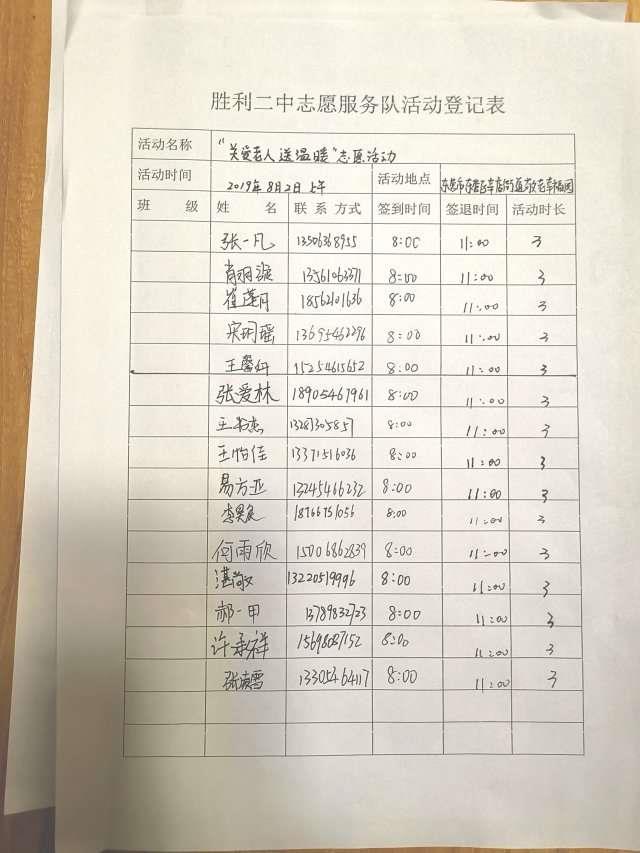 胜利二中志愿服务队活动登记表
活动名称 "关爱老人送温暖"志愿活动
活动时间 2019年8月2日上午 活动地点
班 级 姓 名 联系方式 签到时间 签退时间 活动时长
张一凡 13506368955 8:00 11:00 3
13561063371 8:00 11:00 3
崔莲月 18562101636 8:00 11:00 3
宋玥瑶 13695462296 8:00 11:00 3
王馨舸 15254615652 8:00 11:00 3
张爱林 18905467961 8:00 11:00 3
王书杰 13287305857 8:00 11:00 3
王怡佳 13371516036 8:00 11:00 3
易方亚 13245466232 8:00 11:00 3
李昊宸 18766751056 8:00 11:00 3
何雨欣 15006862839 8:00 11:00 3
湛敬 13220519996 8:00 11:00 3
郝一甲 13789832723 8:00 11:00 3
许承祥 15698087152 8:00 11:00 3
张凌雪 13305464117 8:00 11:00 3